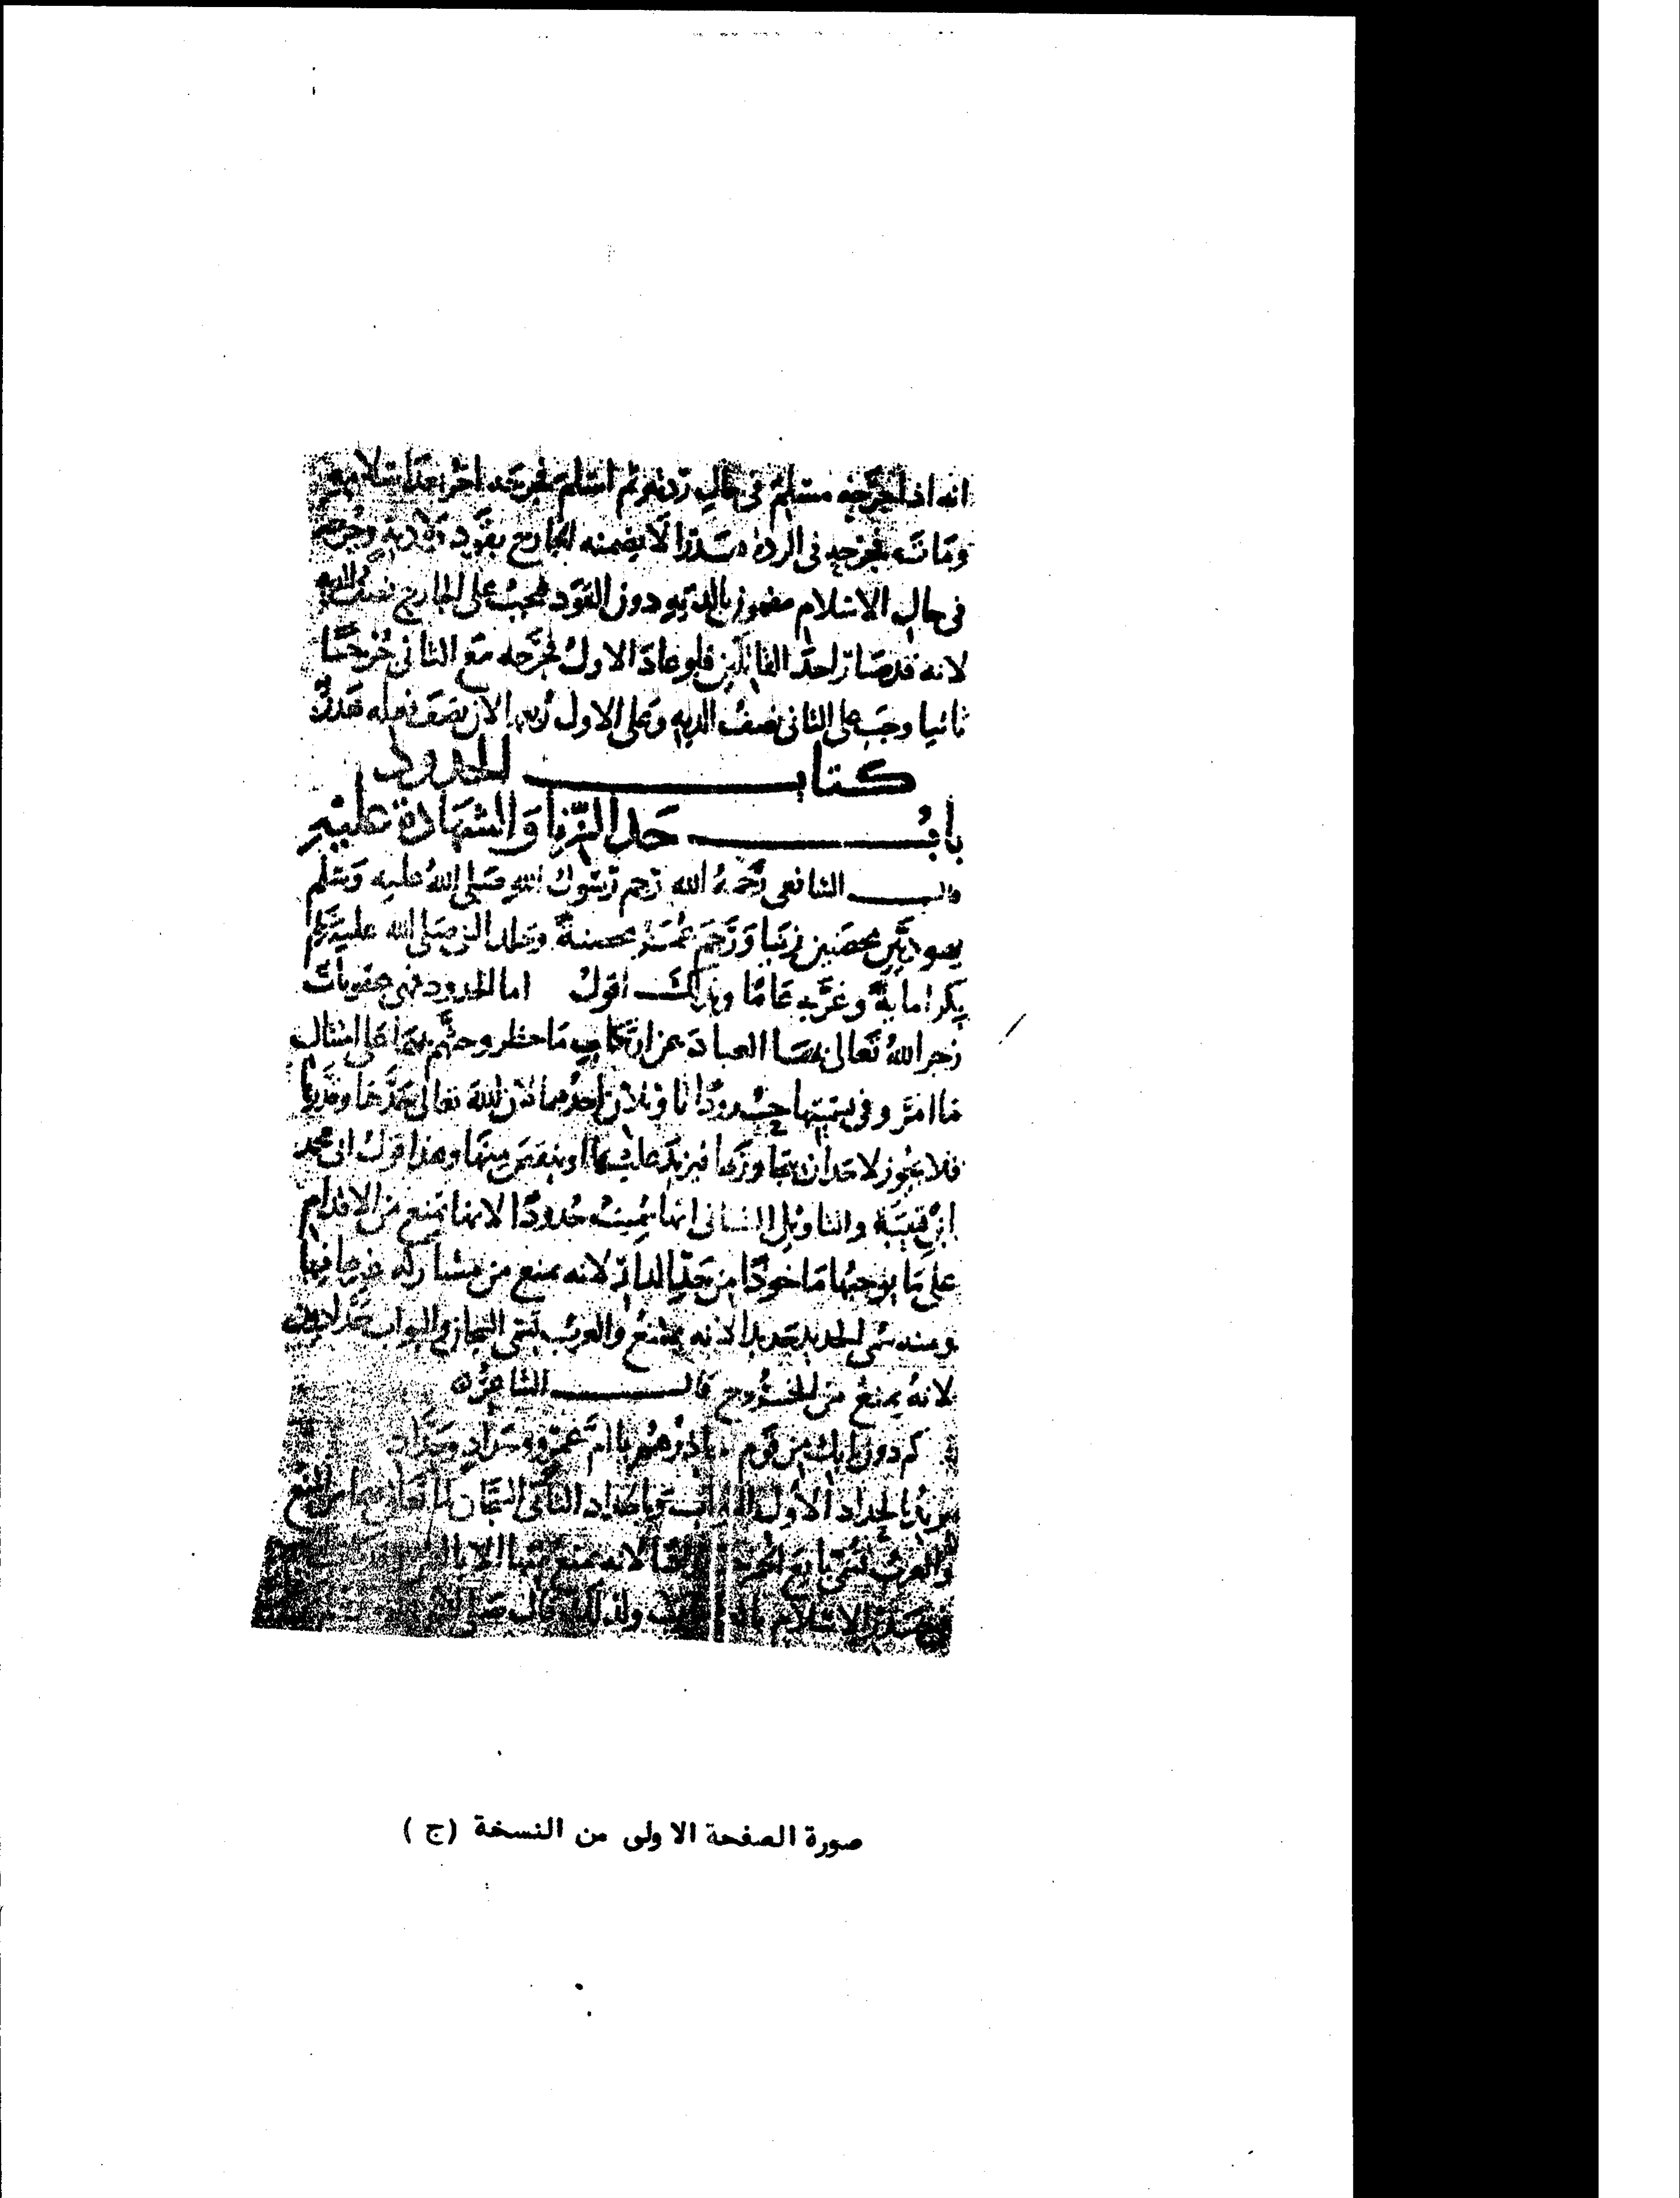 انه اذا جرحه مسلم فى حال ردته ثم اسلم فجرحه اخر بعد اسلامه
ومات فجرحه فى الردة هدرا لا يضمنه الجارح بقود ولا دية وجرحه
فى حال الاسلام مضمون بالدية دون القود فيجب على الجارح نصف الدية
لانه قد صار احد القاتلين فلو عاد الاول فجرحه مع الثانى جرحا
ثانيا وجب على الثانى نصف الدية وعلى الاول ربعها لان نصف فعله هدر
كتاب الحدود
باب حد الزنا والشهادة عليه
قال الشافعى رحمه الله رجم رسول الله صلى الله عليه وسلم
يهوديين محصنين زنيا ورجم عمر محصنة وجلد النبى صلى الله عليه وسلم
بكرا مائة وغربه عاما وبذلك اقول اما الحدود فهى عقوبات
زجر الله تعالى بها العباد عن ارتكاب ما حظر وحثهم بها على امتثال
ما امر وفى تسميتها حدودا تاويلان احدهما لان الله تعالى حدها وقدرها
فلا يجوز لاحد ان يتجاوزها فيزيد عليها او ينقص منها وهذا قول ابى محمد
ابن قتيبة والتاويل الثانى انها سميت حدودا لانها تمنع من الاقدام
على ما يوجبها ماخوذا من حد الدار لانه يمنع من مشاركة غيرها فيها
ومنه سمى الحديد حديدا لانه يمتنع به والعرب تسمى السجان والبواب حدادا
لانه يمنع من الخروج قال الشاعر
كم دون بابك من قوم يا ام عمرو وحداد وحداد
يريد بالحداد الاول البواب وبالحداد الثانى السجان لما فيهما من المنع
والعرب تسمى بايع الخمر لانه يمنع
صدر الاسلام ولذلك قال
صورة الصفحة الاولى من النسخة (ج)